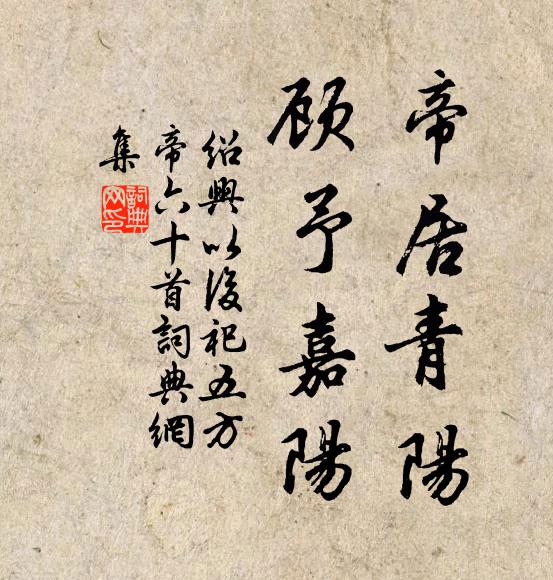 帝居青陽
顾予嘉陽
绍興以後祀五方
帝六十首詞典網
集
詞典
网印